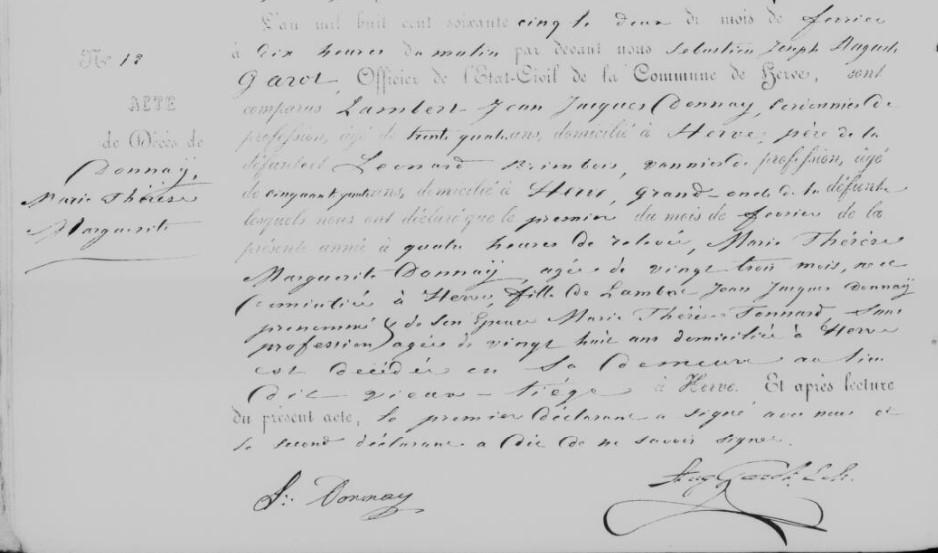 N° 12
ACTE
de Décès de
Donnaÿ,
Marie Thérèse
Marguerite
L'an mil huit cent soixante cinq le deux du mois de février
à dix heures du matin par devant nous Sebastien Joseph Auguste
Garot, Officier de l'Etat-Civil de la Commune de Herve, sont
comparus Lambert Jean Jacques Donnay, de
profession, âgé de trente quatre ans, domicilié à Herve, père de la
défunte et Leonard vannier de profession, âgé
de cinquante ans, domicilié à Herve, grand-oncle de la défunte
lesquels nous ont déclaré que le premier du mois de février de la
présente année à quatre heures de relevée, Marie Thérèse
Marguerite Donnaÿ, agée de vingt trois mois, née et
domiciliée à Herve, fille de Lambert Jean Jacques Donnaÿ
prénommé & de son Epouse Marie Thérèse Tonnard, sans
profession, agée de vingt huit ans domiciliée à Herve
est décédée en sa demeure au lieu
dit vieux-tiége à Herve. Et après lecture
du présent acte, le premier déclarant a signé avec nous et
le second déclarant a dit de ne savoir signer.
L: Donnay
Aug Garot